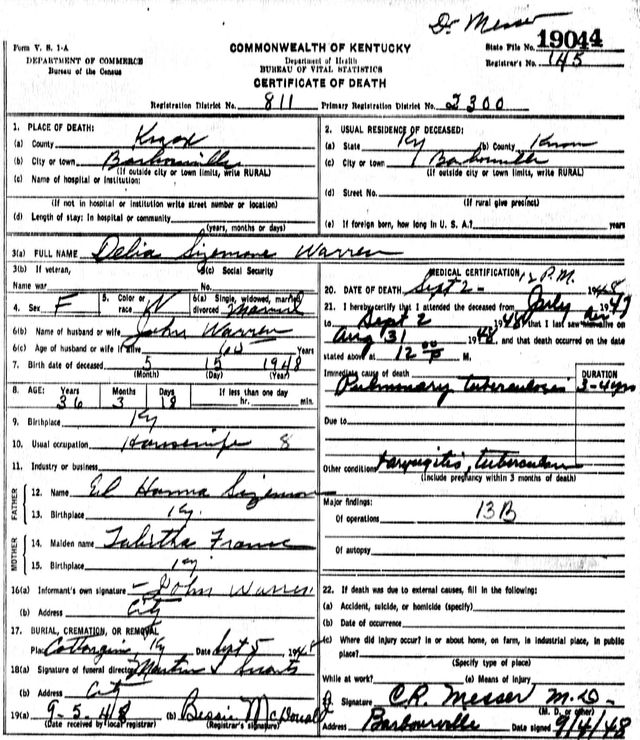 Dr. Messer
Form V. S. 1-A
DEPARTMENT OF COMMERCE
Bureau of the Census
COMMONWEALTH OF KENTUCKY
Department of Health
BUREAU OF VITAL STATISTICS
CERTIFICATE OF DEATH
State File No. 19044
Registrar's No. 145
Registration District No. 811 Primary Registration District No. 2300
1. PLACE OF DEATH:
(a) County Knox
(b) City or town Barbourville
(If outside city or town limits, write RURAL)
(c) Name of hospital or institution:
(If not in hospital or institution write street number or location)
(d) Length of stay: In hospital or community
(years, months or days)
2. USUAL RESIDENCE OF DECEASED:
(a) State Ky (b) County Knox
(c) City or town Barbourville
(If outside city or town limits, write RURAL)
(d) Street No.
(If rural give precinct)
(e) If foreign born, how long in U. S. A.? years
3(a) FULL NAME Delia Sizemore Warren
3(b) If veteran, 3(c) Social Security
Name war No.
4. Sex F 5. Color or race W 6(a) Single, widowed, married, divorced Married
6(b) Name of husband or wife John Warren
6(c) Age of husband or wife if alive Years
7. Birth date of deceased 5 15 1948
(Month) (Day) (Year)
8. AGE: Years Months Days If less than one day
36 3 18 hr. min.
9. Birthplace Ky
10. Usual occupation Housewife 8
11. Industry or business
FATHER
12. Name Ed Hanna Sizemore
13. Birthplace Ky.
MOTHER
14. Maiden name Tabitha
15. Birthplace Ky
16(a) Informant's own signature John Warren
(b) Address City
17. BURIAL, CREMATION, OR REMOVAL
Place Ky Date Sept 5 1948
18(a) Signature of funeral director Martin
(b) Address City
19(a) 9-5-48 (b) Bessie McDonald
(Date received by local registrar) (Registrar's signature)
MEDICAL CERTIFICATION 12 P.M.
20. DATE OF DEATH Sept 2- 1948
21. I hereby certify that I attended the deceased from July 1947
to Sept 2 1948 that I last saw alive on
Aug 31 1948, and that death occurred on the date
stated above at 12 P M.
Immediate cause of death DURATION
Pulmonary tuberculosis 3-4 yrs
Due to
Other conditions Laryngitis, tuberculous
(Include pregnancy within 3 months of death)
Major findings:
Of operations 13B
Of autopsy
22. If death was due to external causes, fill in the following:
(a) Accident, suicide, or homicide (specify)
(b) Date of occurrence
(c) Where did injury occur? In or about home, on farm, in industrial place, in public
place?
(Specify type of place)
While at work? (e) Means of injury
23. Signature C.R. Messer M.D-
(M. D. or other)
Address Barbourville Date signed 9/4/48